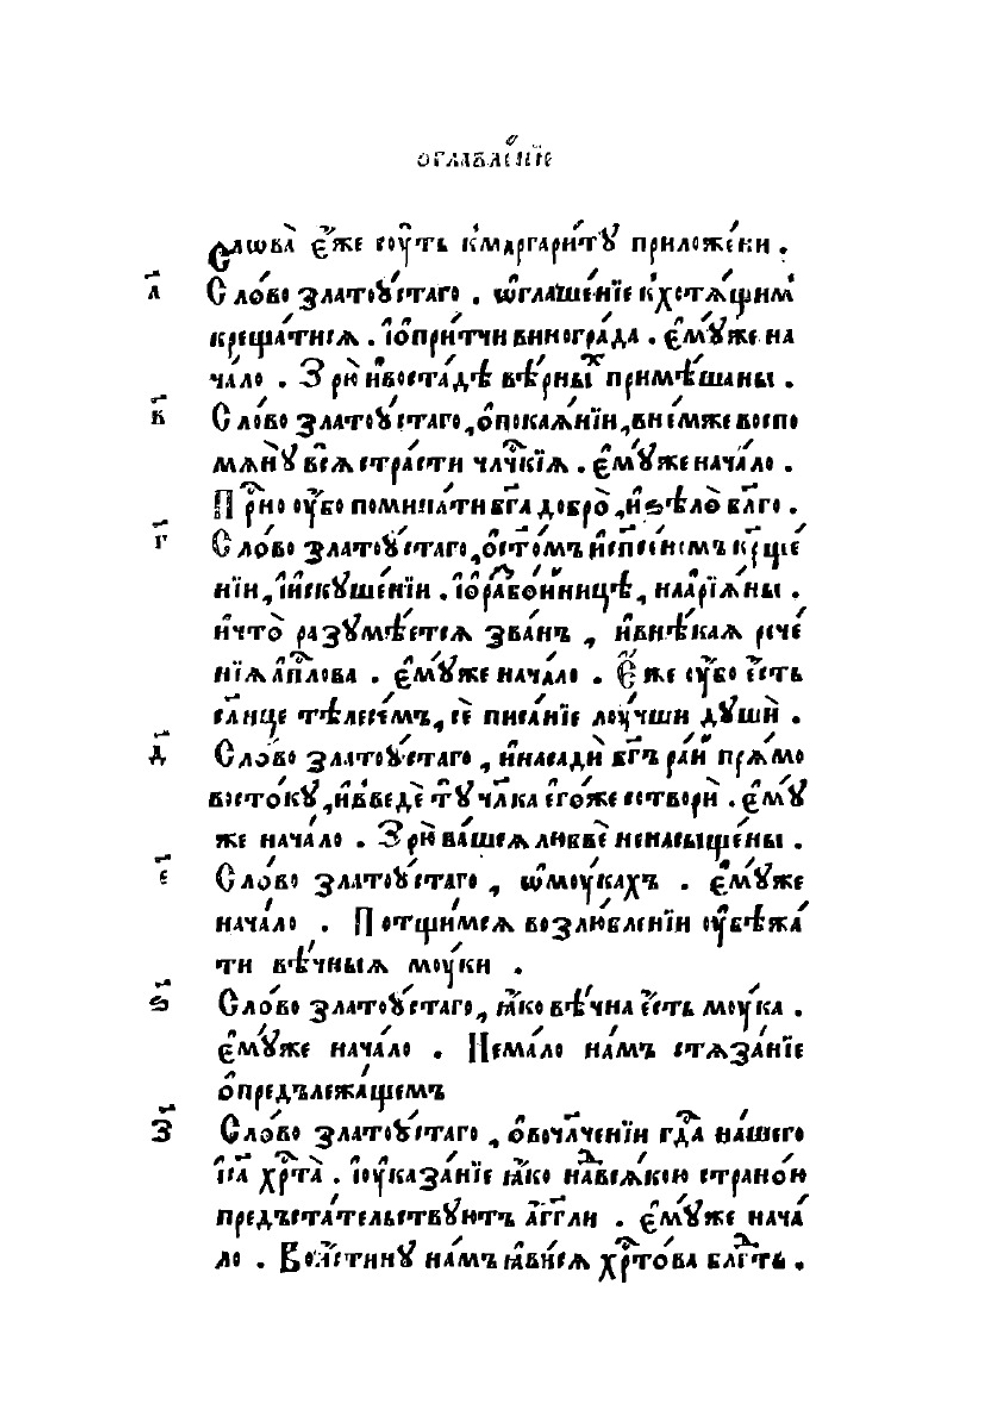 ѡглавле́нїе
Словѐ є҆́же сꙋ́ть к̾маргарі́тꙋ приложе́ни .
а҃ Сло́во златоꙋ́стаго . ѡ҆глаше́нїе к̾хотѧ́щим̾
крести́тисѧ . і҆ѻ҆при́тчи виногра́да . є҆мꙋ́же на
ча́ло . Зрю̀ и҆воста́дѣ вѣ́рныⷯ примѣ́шаны .
в҃ Сло́во златоꙋ́стаго , ѻ҆покаѧ́нїи , внемже воспо
мѧнꙋ̀ всѧ̀ стра́сти чл҃чкїѧ . є҆мꙋ́же нача́ло .
Пр҇но ᲂу҆́бо помина́ти бг҃а добро̀ , и҆ѕѣло̀ бл҃го .
г҃ Сло́во златоꙋ́стаго , ѻ҆ст҃омъ и҆сп҃сеномъ кр҃ще́
нїи , і҆и҆скꙋше́нїи . і҆ѻ҆разбо́йницѣ , нааріѧ́ны .
и҆что̀ разꙋмѣ́етсѧ зва́нъ , и҆внѣ́каѧ рече́
нїѧ а҆п҇лова . є҆мꙋ́же нача́ло . Є҆́же ᲂу҆́бо є҆́сть
сл҃нце тѣлесе́мъ , сѐ писа́нїе лꙋ́чши дꙋшѝ .
д҃ Сло́во златоꙋ́стаго , и҆насадѝ бг҃ъ ра́й прѧ́мо
восто́кꙋ , и҆введѐ тꙋ̀ чл҃ка є҆го́же сотворѝ . є҆мꙋ́
же нача́ло . Зрю̀ ва́шеѧ любвѐ ненасыще́ны .
є҃ Сло́во златоꙋ́стаго , ѡ҆мꙋ́кахъ . є҆мꙋ́же
нача́ло . Потщи́мсѧ возлю́бленїи ᲂу҆бѣжа́
ти вѣ́чныѧ мꙋ́ки .
ѕ҃ Сло́во златоꙋ́стаго , ꙗ҆́ко вѣ́чна є҆́сть мꙋ́ка .
є҆мꙋ́же нача́ло . Нема́ло на́мъ стѧза́нїе
ѻ҆предълежа́щемъ
з҃ Сло́во златоꙋ́стаго , ѻ҆вочл҃ченїи гдⷭ҇а на́шего
і҆с҃а хрⷭ҇та̀ . і҆ᲂу҆каза́нїе ꙗ҆́ко наⷣвсѧ́кою страно́ю
предъста́тельствꙋютъ а҆́гг҃ли . є҆мꙋ́же нача́
ло . Вои́стинꙋ на́мъ ꙗ҆ви́сѧ хрⷭ҇то́ва блг҃ть .